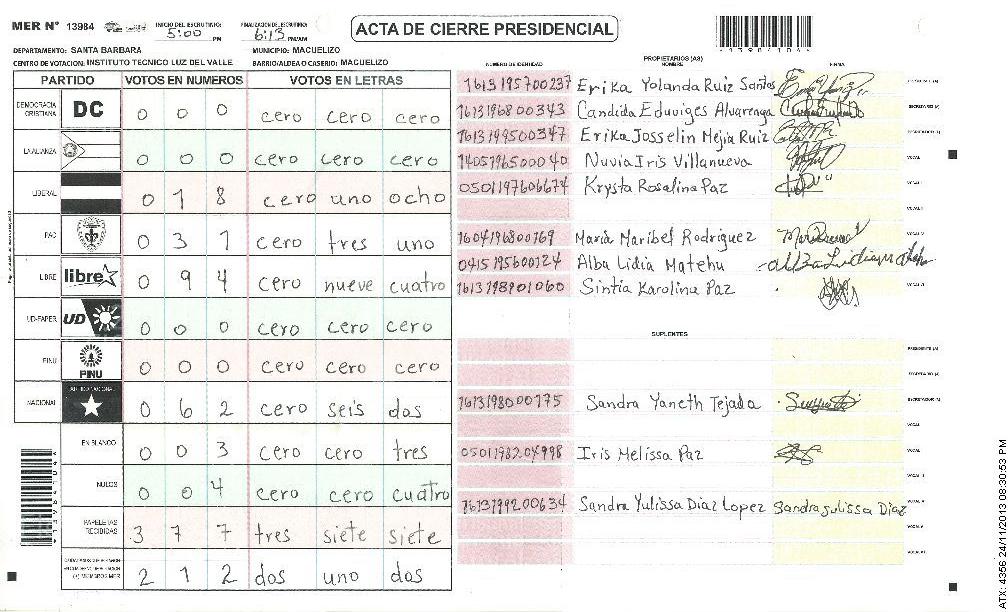 MER Nº 13984
INICIO DEL ESCRUTINIO: 5:00 PM
FINALIZACION DEL ESCRUTINIO: 6:13 PM/AM
ACTA DE CIERRE PRESIDENCIAL
DEPARTAMENTO: SANTA BARBARA
MUNICIPIO: MACUELIZO
CENTRO DE VOTACION: INSTITUTO TECNICO LUZ DEL VALLE
BARRIO/ALDEA O CASERIO: MACUELIZO
PARTIDO VOTOS EN NUMEROS VOTOS EN LETRAS
DEMOCRACIA CRISTIANA DC 0 0 0 cero cero cero
LA ALIANZA 0 0 0 cero cero cero
LIBERAL 0 1 8 cero uno ocho
PAC 0 3 1 cero tres uno
LIBRE libre 0 9 4 cero nueve cuatro
UD-FAPER UD 0 0 0 cero cero cero
PINU PINU 0 0 0 cero cero cero
NACIONAL PARTIDO NACIONAL 0 6 2 cero seis dos
EN BLANCO 0 0 3 cero cero tres
NULOS 0 0 4 cero cero cuatro
PAPELETAS RECIBIDAS 3 7 7 tres siete siete
(+) MIEMBROS MER 2 1 2 dos uno dos
PROPIETARIOS (AS)
NUMERO DE IDENTIDAD NOMBRE FIRMA
1613195700237 Erika Yolanda Ruiz Santos PRESIDENTE (A)
1613196800343 Candida Eduviges Alvarenga SECRETARIO (A)
1613199500347 Erika Josselin Mejia Ruiz
1405196500040 Nuvia Iris Villanueva VOCAL
0501197606674 Krysta Rosalina Paz VOCAL I
VOCAL II
1604196800169 Maria Maribel Rodriguez
0415195600124 Alba Lidia Matehu
1613198901060 Sintia Karolina Paz
SUPLENTES
PRESIDENTE (A)
SECRETARIO (A)
1613198000175 Sandra Yaneth Tejada
VOCAL
0501198204998 Iris Melissa Paz VOCAL
1613199200634 Sandra Yulissa Diaz Lopez Sandra yulissa Diaz
ATX: 4356 24/11/2013 08:30:53 PM